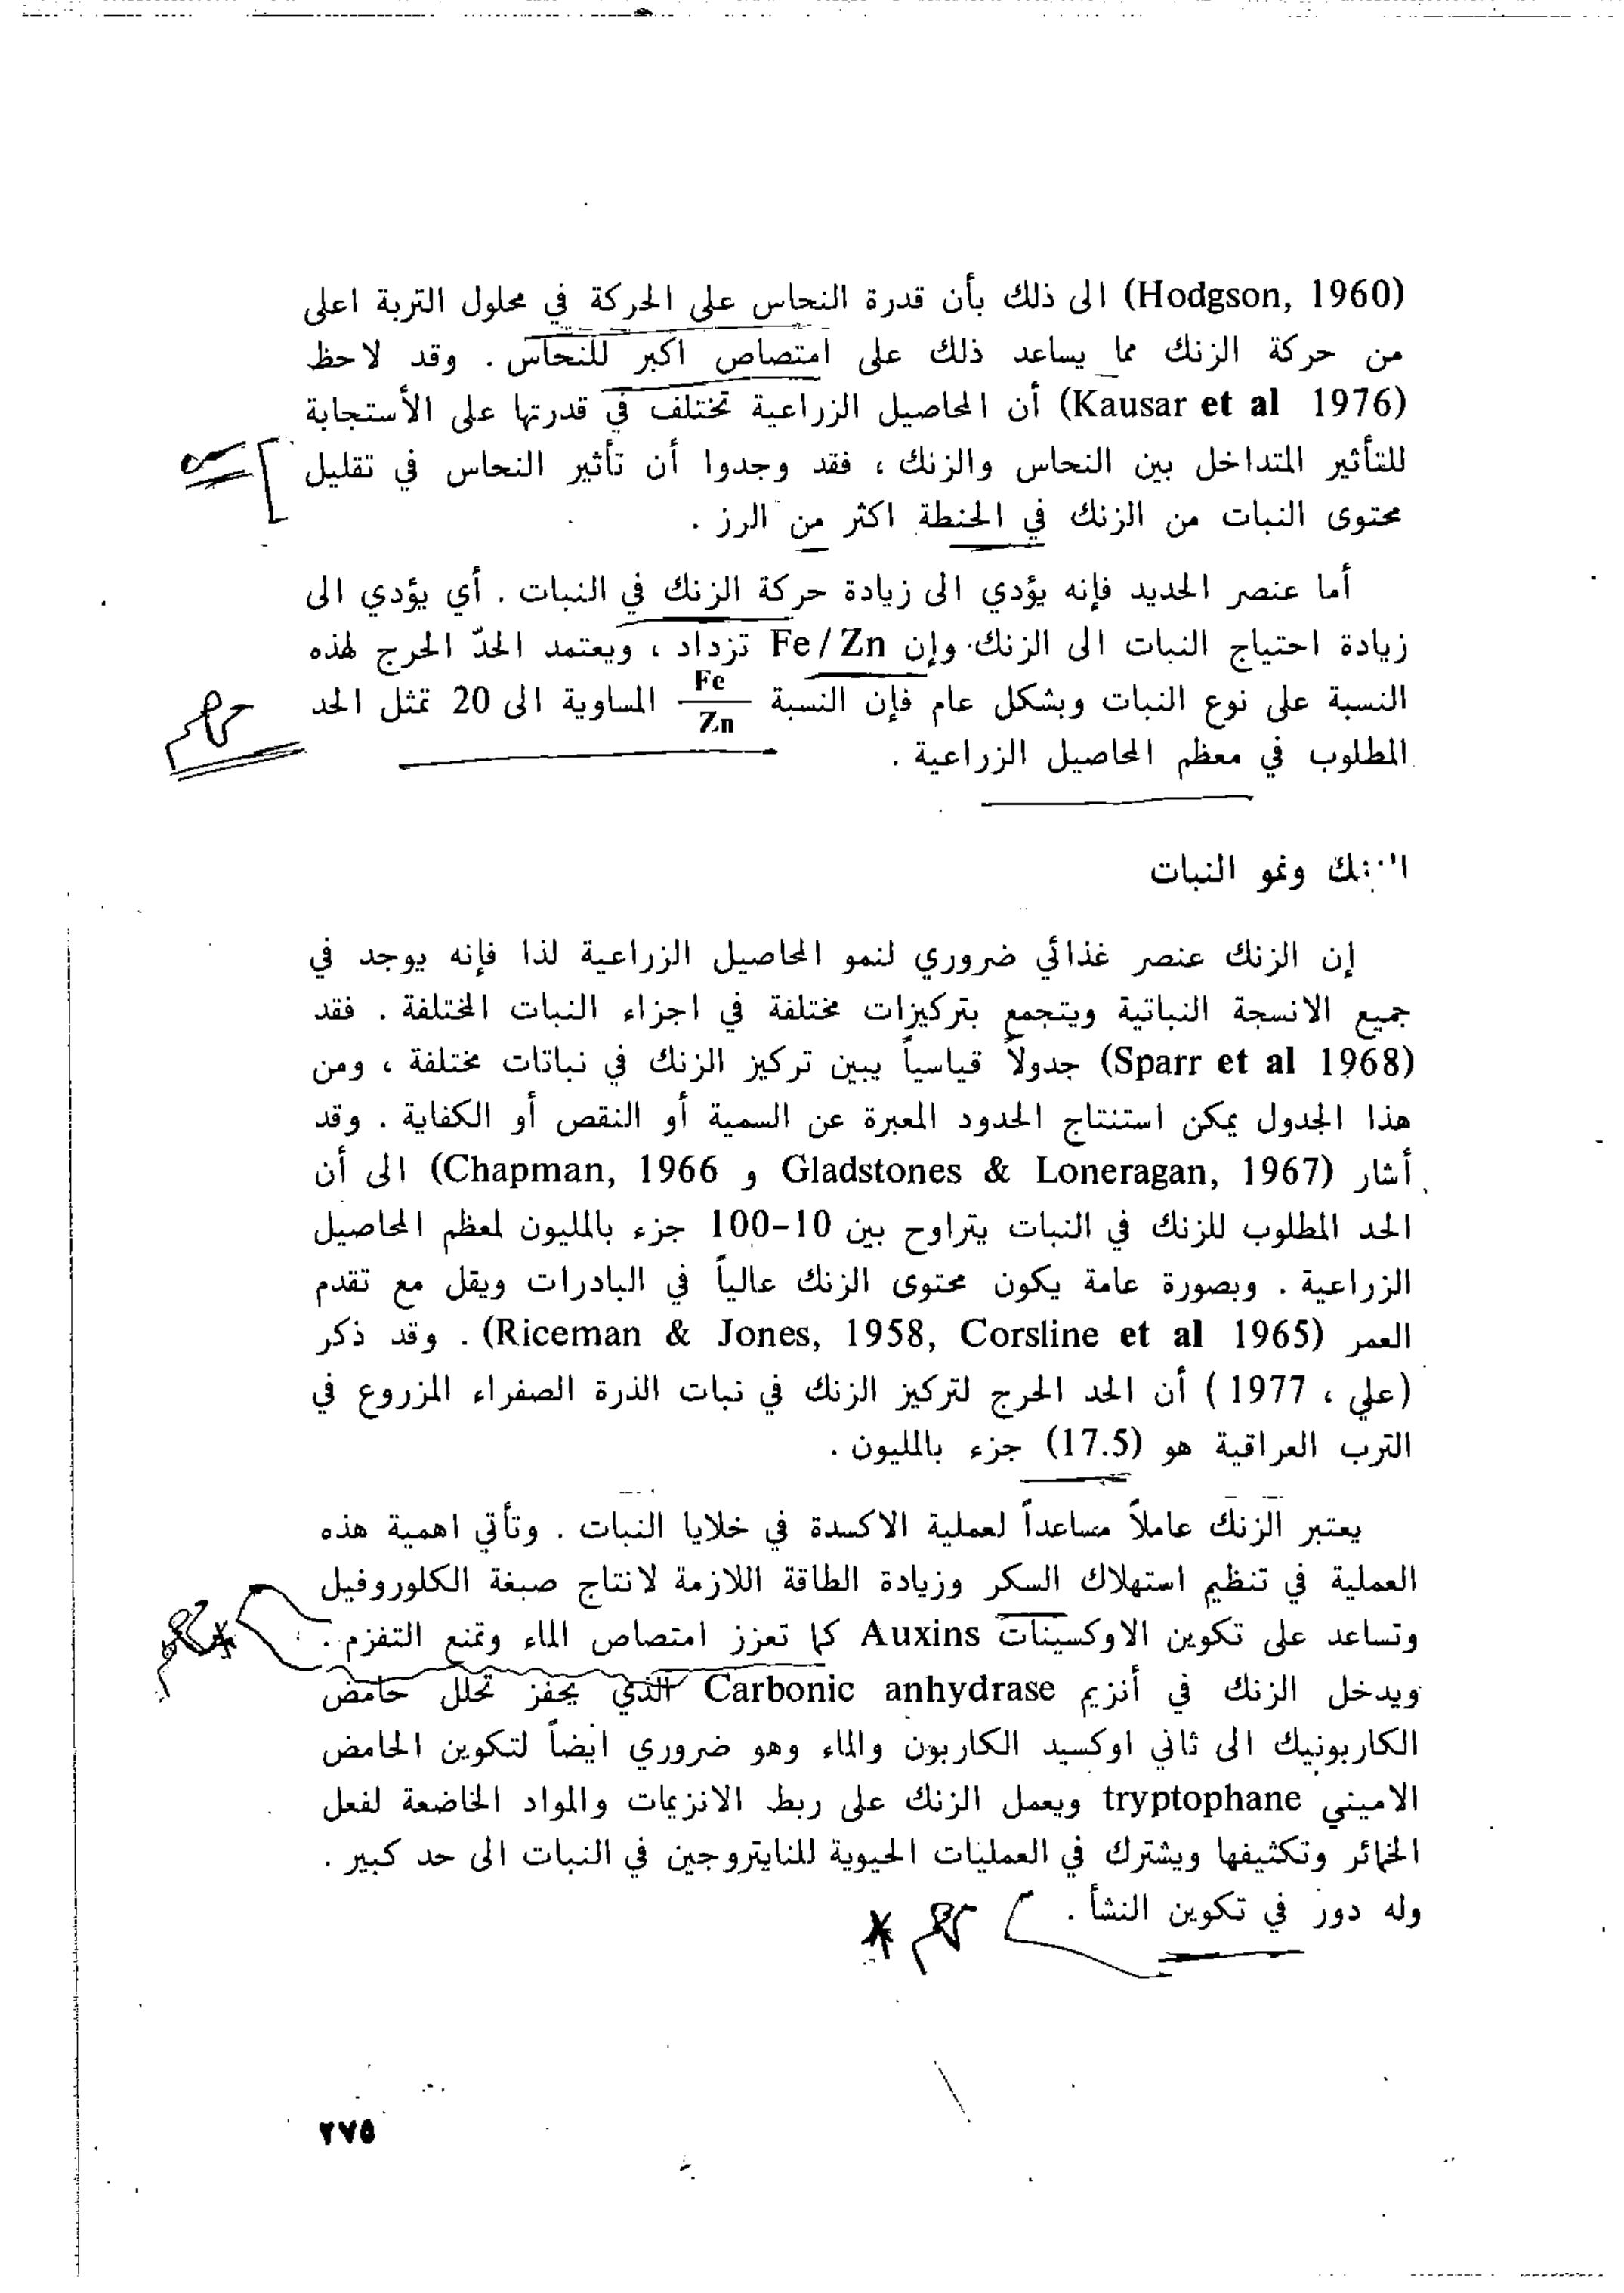 (Hodgson, 1960) الى ذلك بأن قدرة النحاس على الحركة في محلول التربة اعلى
من حركة الزنك مما يساعد ذلك على امتصاص اكبر للنحاس . وقد لاحظ
(Kausar et al 1976) أن المحاصيل الزراعية تختلف في قدرتها على الأستجابة
للتأثير المتداخل بين النحاس والزنك ، فقد وجدوا أن تأثير النحاس في تقليل
محتوى النبات من الزنك في الحنطة اكثر من الرز .
أما عنصر الحديد فإنه يؤدي الى زيادة حركة الزنك في النبات . أي يؤدي الى
زيادة احتياج النبات الى الزنك وإن Fe/Zn تزداد ، ويعتمد الحدّ الحرج لهذه
النسبة على نوع النبات وبشكل عام فإن النسبة Fe/Zn المساوية الى 20 تمثل الحد
المطلوب في معظم المحاصيل الزراعية .
الزنك ونمو النبات
إن الزنك عنصر غذائي ضروري لنمو المحاصيل الزراعية لذا فإنه يوجد في
جميع الانسجة النباتية ويتجمع بتركيزات مختلفة في اجزاء النبات المختلفة . فقد
(Sparr et al 1968) جدولاً قياسياً يبين تركيز الزنك في نباتات مختلفة ، ومن
هذا الجدول يمكن استنتاج الحدود المعبرة عن السمية أو النقص أو الكفاية . وقد
أشار (Gladstones & Loneragan, 1967 و Chapman, 1966) الى أن
الحد المطلوب للزنك في النبات يتراوح بين 10-100 جزء بالمليون لمعظم المحاصيل
الزراعية . وبصورة عامة يكون محتوى الزنك عالياً في البادرات ويقل مع تقدم
العمر (Riceman & Jones, 1958, Corsline et al 1965) . وقد ذكر
(علي ، 1977) أن الحد الحرج لتركيز الزنك في نبات الذرة الصفراء المزروع في
الترب العراقية هو (17.5) جزء بالمليون .
يعتبر الزنك عاملاً مساعداً لعملية الاكسدة في خلايا النبات . وتأتي اهمية هذه
العملية في تنظيم استهلاك السكر وزيادة الطاقة اللازمة لانتاج صبغة الكلوروفيل
وتساعد على تكوين الاوكسينات Auxins كما تعزز امتصاص الماء وتمنع التفزم .
ويدخل الزنك في أنزيم Carbonic anhydrase الذي يحفز تحلل حامض
الكاربونيك الى ثاني اوكسيد الكاربون والماء وهو ضروري ايضاً لتكوين الحامض
الاميني tryptophane ويعمل الزنك على ربط الانزيمات والمواد الخاضعة لفعل
الخمائر وتكثيفها ويشترك في العمليات الحيوية للنايتروجين في النبات الى حد كبير .
وله دور في تكوين النشأ .
٢٧٥